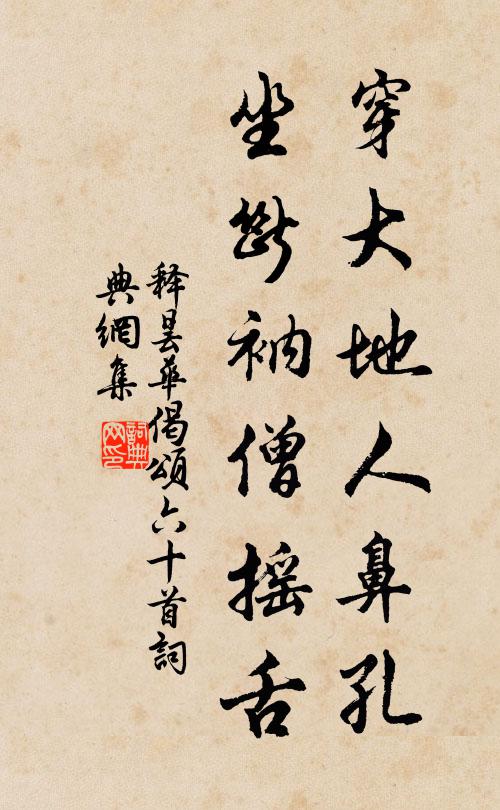 穿大地人鼻孔
坐断衲僧摇舌
释昙华偈颂六十首詞
典網集
詞典
网印